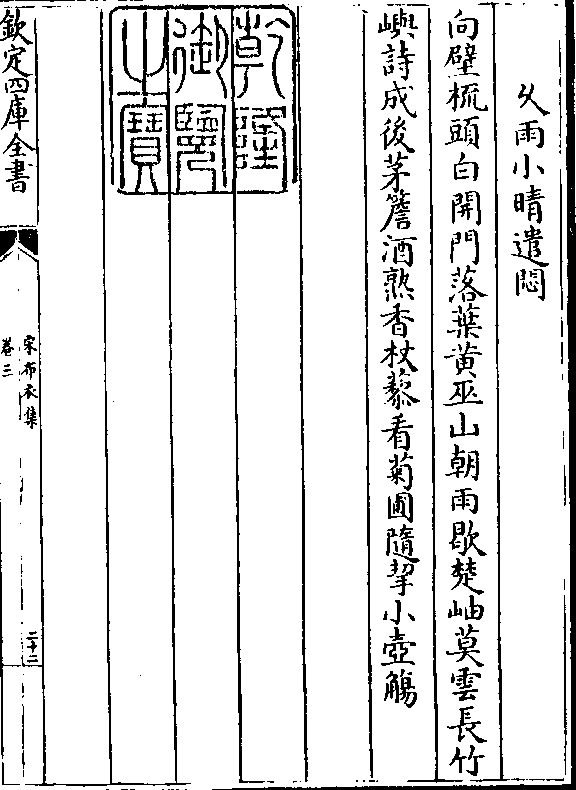 久雨小晴遣悶
向壁梳頭白開門落葉黄巫山朝雨歇楚岫莫雲長竹
嶼詩成後茅簷酒熟香杖藜看菊圃隨挈小壺觴
乾隆
御覽
之寶
欽定四庫全書
宋布衣集
卷三
二十二